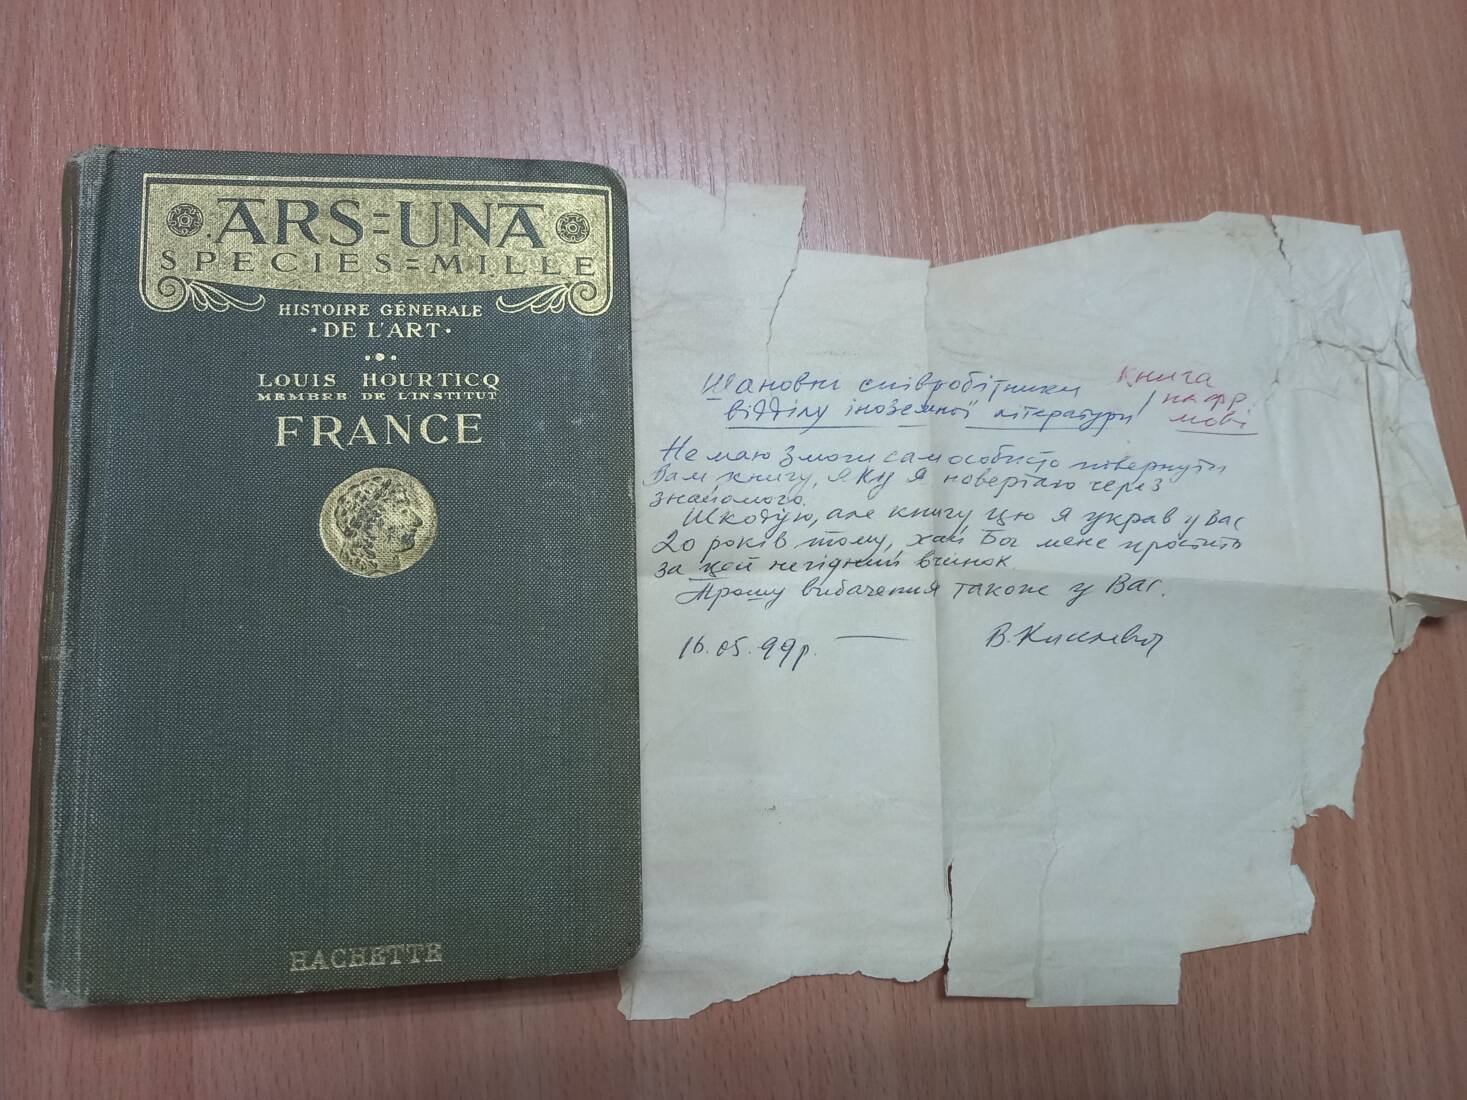 ARS=UNA
SPECIES=MILLE
HISTOIRE GÉNÉRALE
·DE L'ART·
LOUIS HOURTICQ
MEMBRE DE L'INSTITUT
FRANCE
HACHETTE
Шановні співробітники
відділу іноземної літератури!
Книга
на фр.
мові
Не маю змоги сам особисто повернути
Вам книгу, яку я повертаю через
знайомого.
Шкодую, але книгу цю я украв у Вас
20 років тому, хай Бог мене простить
за цей негідний вчинок.
Прошу вибачення також у Вас.
16.05.99р.
В.